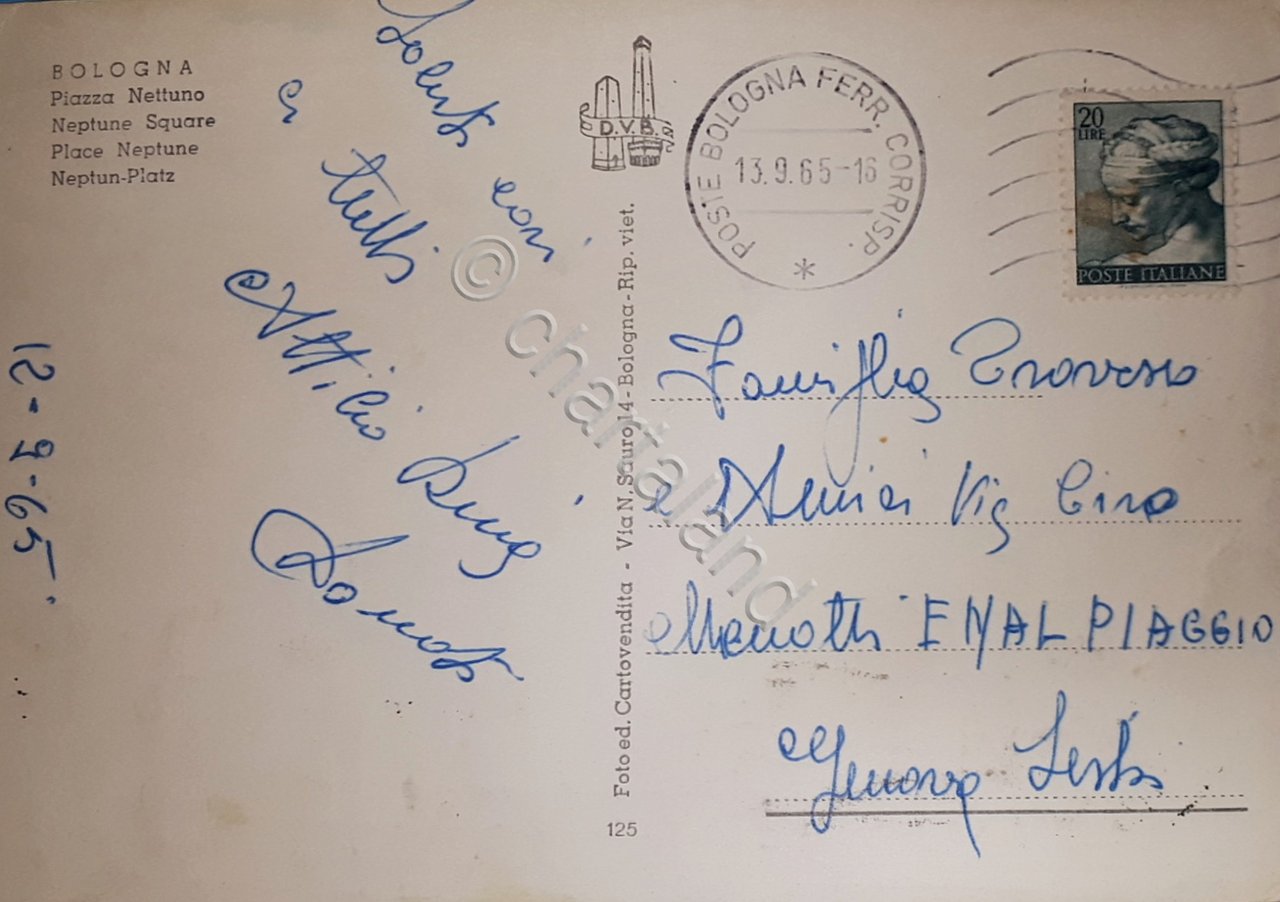 BOLOGNA
Piazza Nettuno
Neptune Square
Place Neptune
Neptun-Platz
Saluti cari
a tutti
Attilio
12-9-65
D.V.B.
Foto ed. Cartovendita - Via N. Sauro, 14 - Bologna - Rip. viet.
125
POSTE BOLOGNA FERR. CORRISP.
13.9.65-16
20 LIRE
POSTE ITALIANE
Famiglia Traverso
e Amici Via Ciro
Menotti ENAL PIAGGIO
Genova Sestri
© chartaland